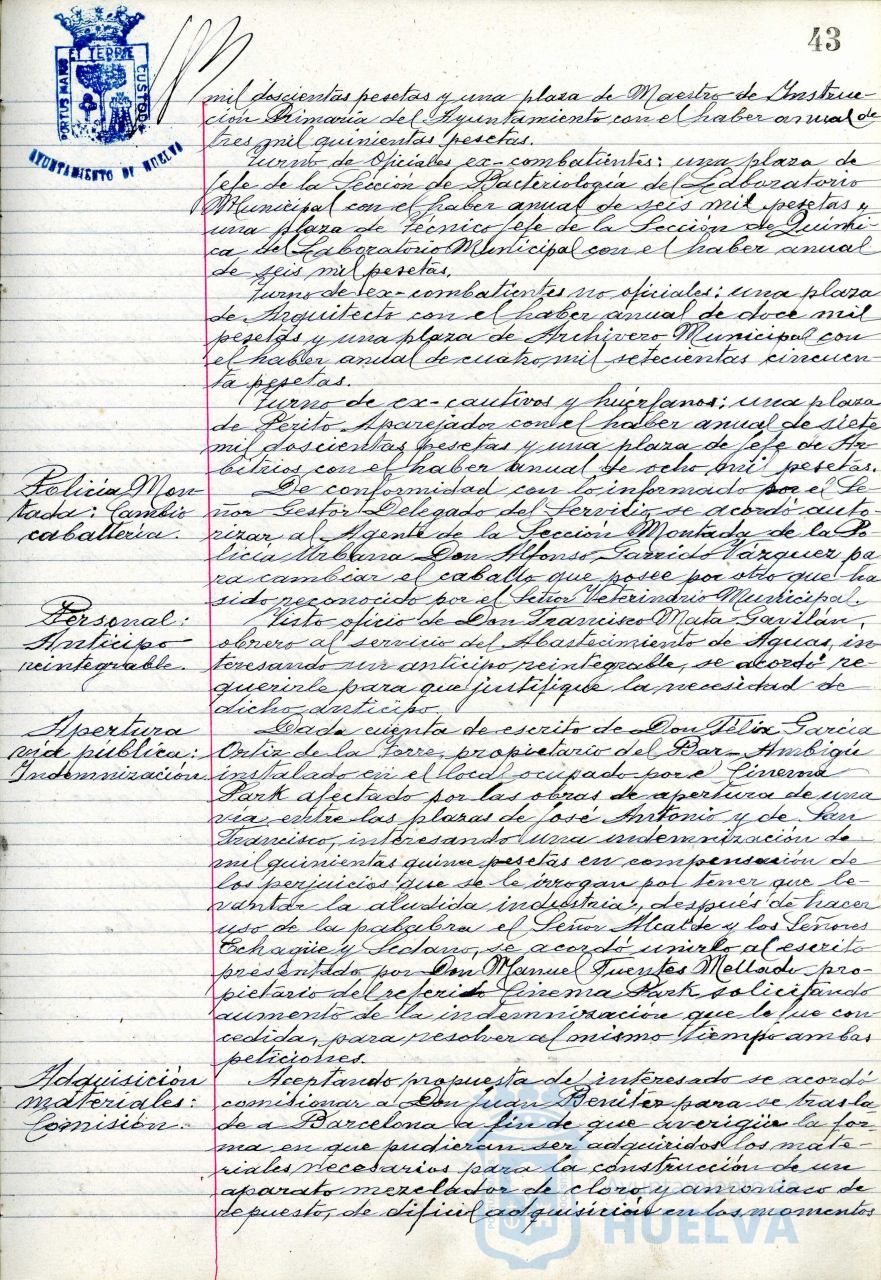 43
PORTUS MARIS
ET TERRE
CUSTODIA
AYUNTAMIENTO DE HUELVA
mil doscientas pesetas y una plaza de Maestro de Instruc-
ción Primaria del Ayuntamiento con el haber anual de
tres mil quinientas pesetas.
Turno de Oficiales ex-combatientes: una plaza de
Jefe de la Sección de Bacteriología del Laboratorio
Municipal con el haber anual de seis mil pesetas y
una plaza de Técnico Jefe de la Sección de Quími-
ca del Laboratorio Municipal con el haber anual
de seis mil pesetas.
Turno de ex-combatientes no oficiales: una plaza
de Arquitecto con el haber anual de doce mil
pesetas y una plaza de Archivero Municipal con
el haber anual de cuatro mil setecientas cincuen-
ta pesetas.
Turno de ex-cautivos y huérfanos: una plaza
de Perito Aparejador con el haber anual de siete
mil doscientas pesetas y una plaza de Jefe de Ar-
bitrios con el haber anual de ocho mil pesetas.
Policía Mon-
tada: Cambio
caballería.
De conformidad con lo informado por el Se-
ñor Gestor Delegado del Servicio, se acordó auto-
rizar al Agente de la Sección Montada de la Po-
licía Urbana Don Alfonso Garrido Vázquez pa-
ra cambiar el caballo que posee por otro que ha
sido reconocido por el Señor Veterinario Municipal.
Personal:
Anticipo
reintegrable.
Visto oficio de Don Francisco Mata Gavilán,
obrero al servicio del Abastecimiento de Aguas, in-
teresando un anticipo reintegrable, se acordó re-
querirle para que justifique la necesidad de
dicho anticipo.
Apertura
vía pública:
Indemnización.
Dada cuenta de escrito de Don Félix García
Ortiz de la Torre, propietario del Bar-Ambigú
instalado en el local ocupado por el Cinema
Park afectado por las obras de apertura de una
vía entre las plazas de José Antonio y de San
Francisco, interesando una indemnización de
mil quinientas quince pesetas en compensación de
los perjuicios que se le irrogan por tener que le-
vantar la aludida industria, después de hacer
uso de la palabra el Señor Alcalde y los Señores
Echagüe y Sedano, se acordó unirlo al escrito
presentado por Don Manuel Fuentes Mellado pro-
pietario del referido Cinema Park solicitando
aumento de la indemnización que le fue con-
cedida, para resolver al mismo tiempo ambas
peticiones.
Adquisición
materiales:
Comisión.
Aceptando propuesta del interesado se acordó
comisionar a Don Juan Benítez para se trasla-
de a Barcelona a fin de que averigüe la for-
ma en que pudieran ser adquiridos los mate-
riales necesarios para la construcción de un
aparato mezclador de cloro y amoniaco de
repuesto, de difícil adquisición en los momentos
Ayuntamiento de
HUELVA